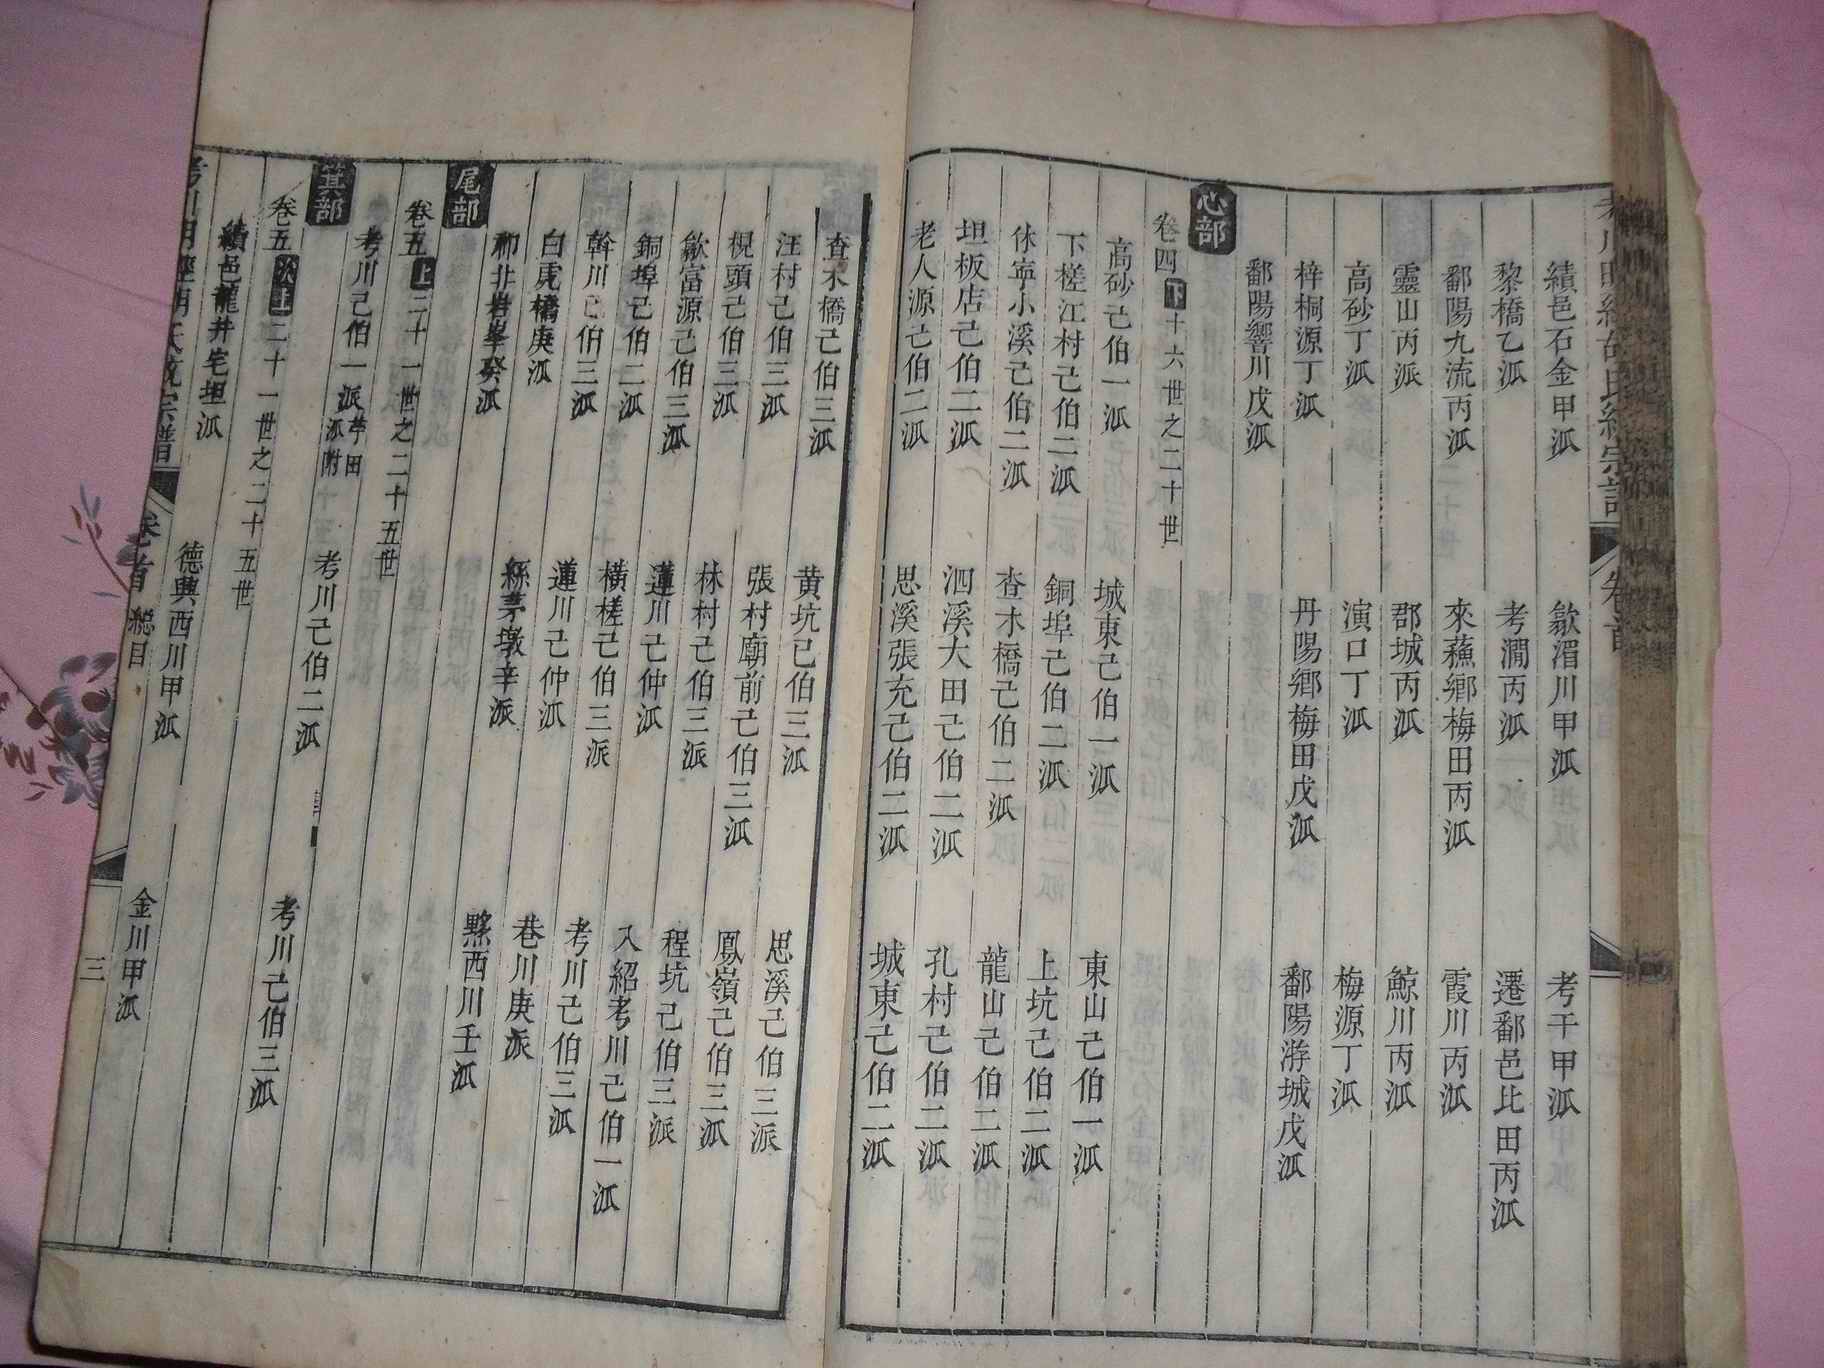 考川明經胡氏統宗譜 卷首
績邑石金甲派 歙湄川甲派 考干甲派
黎橋乙派 考澗丙派 遷鄱邑比田丙派
鄱陽九流丙派 來蘓鄉梅田丙派 霞川丙派
靈山丙派 郡城丙派 鯨川丙派
高砂丁派 演口丁派 梅源丁派
梓桐源丁派 丹陽鄉梅田戊派 鄱陽游城戊派
鄱陽響川戊派
心部
卷四下十六世之二十世
高砂己伯一派 城東己伯一派 東山己伯一派
下槎江村己伯二派 銅埠己伯二派 上坑己伯二派
休寧小溪己伯二派 查木橋己伯二派 龍山己伯二派
坦板店己伯二派 泗溪大田己伯二派 孔村己伯二派
老人源己伯二派 思溪張充己伯二派 城東己伯二派
查木橋己伯三派 黃坑己伯三派 思溪己伯三派
汪村己伯三派 張村廟前己伯三派 鳳嶺己伯三派
梘頭己伯三派 林村己伯三派 程坑己伯三派
歙富源己伯三派 蓮川己仲派 入紹考川己伯一派
銅埠己伯二派 橫槎己伯三派 考川己伯三派
幹川己伯三派 蓮川己仲派 巷川庚派
白虎橋庚派 繇茅墩辛派 黟西川壬派
祁井岩峯癸派
尾部
卷五上二十一世之二十五世
考川己伯一派芋田派附 考川己伯二派 考川己伯三派
箕部
卷五次上二十一世之二十五世
績邑龍井宅坦派 德興西川甲派 金川甲派
考川明經胡氏統宗譜 卷首 總目 三